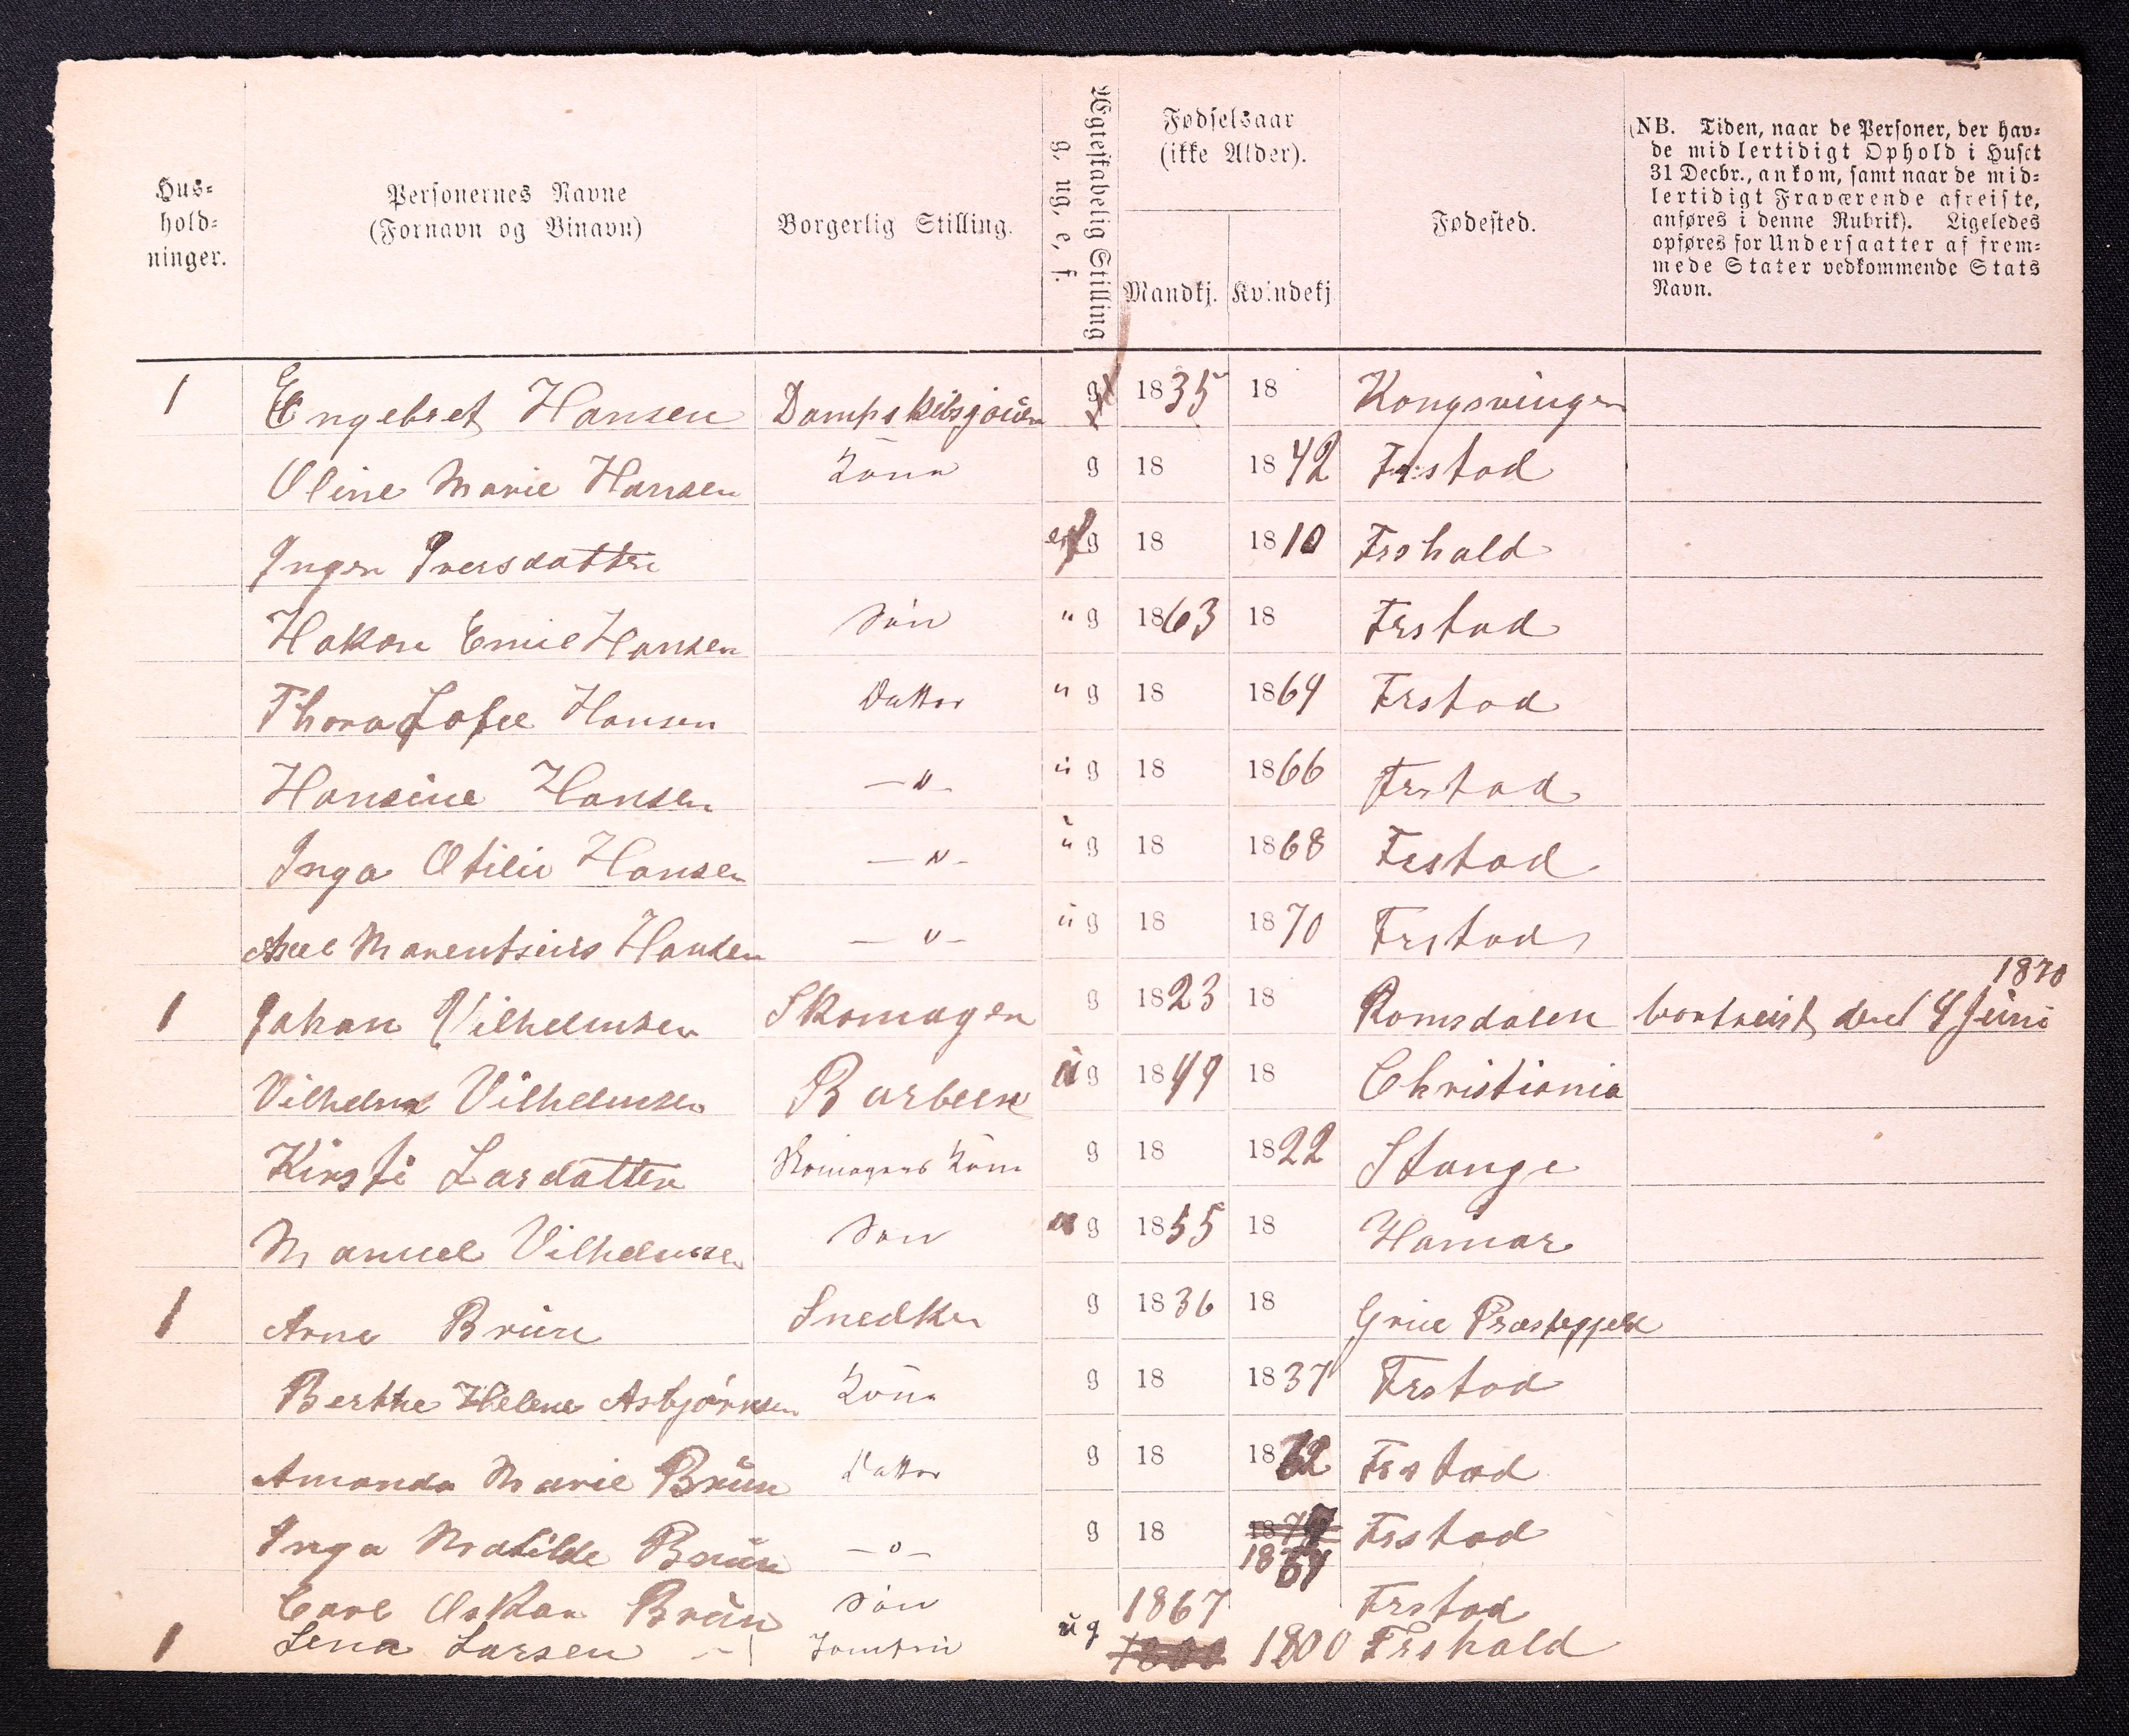 Hus-
hold-
ninger.
Personernes Navne
(Fornavn og Binavn)
Borgerlig Stilling.
Ægteskabelig Stilling
g. ug. e. f.
Fødselsaar
(ikke Alder).
Mandkj. Kvindekj
Fødested.
(NB. Tiden, naar de Personer, der hav-
de midlertidigt Ophold i Huset
31 Decbr., ankom, samt naar de mid-
lertidigt Fraværende afreiste,
anføres i denne Rubrik). Ligeledes
opføres for Undersaatter af frem-
mede Stater vedkommende Stats
Navn.
1 Engebret Hansen g 1835 18 Kongsvinger
Oline Marie Hansen Kone g 18 1842 Frstad
Inger Iversdatter g 18 1810 Frshald
Hakon Emil Hansen Søn u g 1863 18 Frstad
Thora Sofie Hansen Datter u g 18 1864 Frstad
Hansine Hansen —"— u g 18 1866 Frstad
Inga Otilie Hansen —"— u g 18 1868 Frstad
Marentsius Hansen —"— u g 18 1870 Frstad
1870
1 Johan Vilhelmsen Skomager g 1823 18 Romsdalen bortreist den 4 Juni
Vilhelm Vilhelmsen Barbeer u g 1849 18 Christiania
Kirsti Larsdatter Skomagers Kone g 18 1822 Stange
Manuel Vilhelmsen Søn u g 1855 18 Hamar
1 Arne Brùn Snedker g 1836 18 Grue Præstegjeld
Berthe Helene Asbjørnsen Kone g 18 1837 Frstad
Amanda Marie Brùn Datter g 18 1862 Frstad
Inga Matilde Brùn —"— g 18 Frstad
Carl Oskar Brùn Søn 1867 Frstad
1 Lina Larsen Jomfru ùg 1800 Frshald